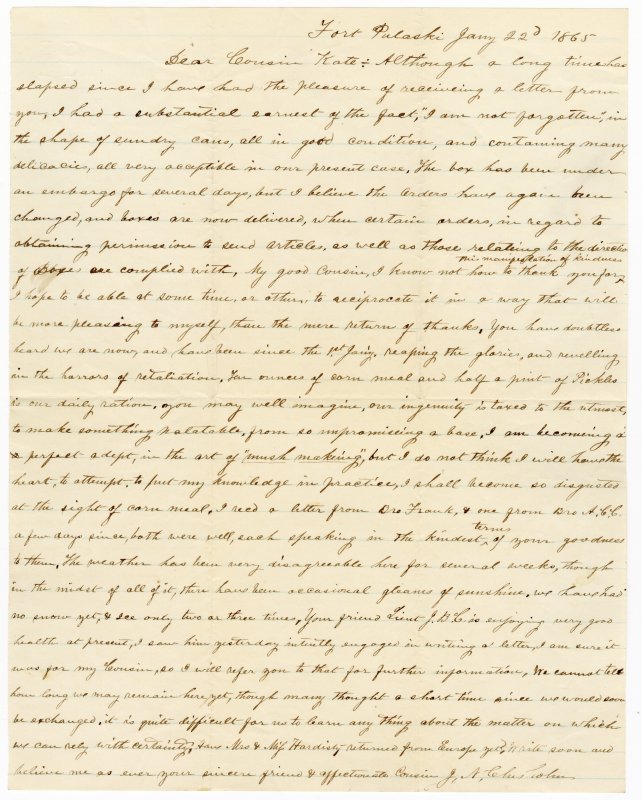 Fort Pulaski Jany 22d 1865
Dear Cousin Kate:- Although a long time has
elapsed since I have had the pleasure of receiveing a letter from
you, I had a substantial earnest of the fact, "I am not forgotten", in
the shape of sundry cans, all in good condition, and containing many
delicacies, all very acceptible in our present case, The box has been under
an embargo for several days, but I believe the orders have again been
changed, and boxes are now delivered, when certain orders, in regard to
obtaining permission to send articles, as well as those relating to the direction
this manifestation of kindness
of boxes are complied with, My good Cousin, I know not how to thank you for,
I hope to be able at some time, or other, to reciprocate it in a way that will
be more pleasing to myself, than the mere return of thanks. You have doubtless
heard we are now, and have been since the 1st Jany, reaping the glories, and revelling
in the horrors of retaliation. Ten ounces of corn meal and half a pint of Pickles
is our daily ration. you may well imagine, our ingenuity is taxed to the utmost,
to make something palatable, from so unpromising a base, I am becoming a
a perfect adept, in the art of "mush making", but I do not think I will have the
heart, to attempt, to put my knowledge in practice, I shall become so disgusted
at the sight of corn meal, I recd a letter from Bro Frank, & one from Bro A. C. C.
terms
a few days since, both were well, each speaking in the kindest, of your goodness
to them, The weather has been very disagreeable here for several weeks, though
in the midst of all of it, there have been occasional gleams of sunshine. we have had
no snow yet, & Ice only two or three times, Your friend Lieut J. D. C. is enjoying very good
health at present, I saw him yesterday intently engaged in writing a letter, I am sure it
was for my Cousin, so I will refer you to that for further information, We cannot tell
how long we may remain here yet, though many thought a short time since we would soon
be exchanged. it is quite difficult for us to learn any thing about the matter on which
we can rely with certainty, Have Mrs & Miss Hardisty returned from Europe yet, Write soon and
believe me as ever your sincere friend & affectionate Cousin J. N. Chisholm